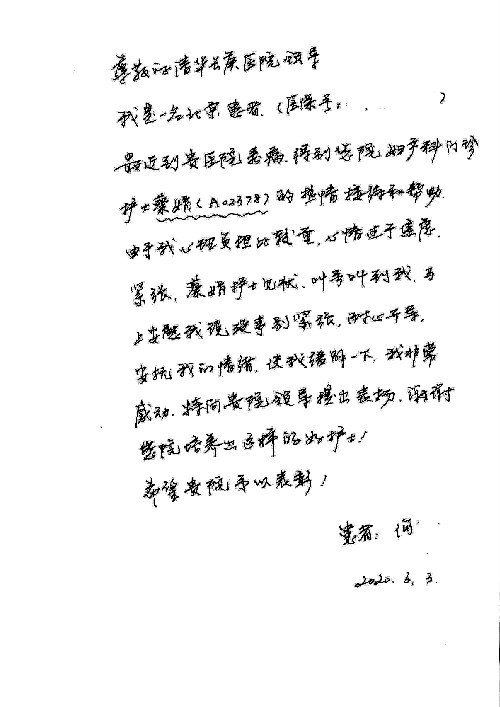 尊敬的清华长庚医院领导
我是一名北京患者,(医保号:
最近到贵医院看病,得到贵院妇产科门诊
护士蔡娟(A02378)的热情接待和帮助.
由于我心理负担比较重,心情过于焦虑,
紧张,蔡娟护士见状,叫号叫到我,马
上安慰我说没事别紧张,耐心开导,
安抚我的情绪,使我缓解一下,我非常
感动,特向贵院领导提出表扬,谢谢
贵院培养出这样的好护士!
希望贵院予以表彰!
患者:何
2020.3.3.